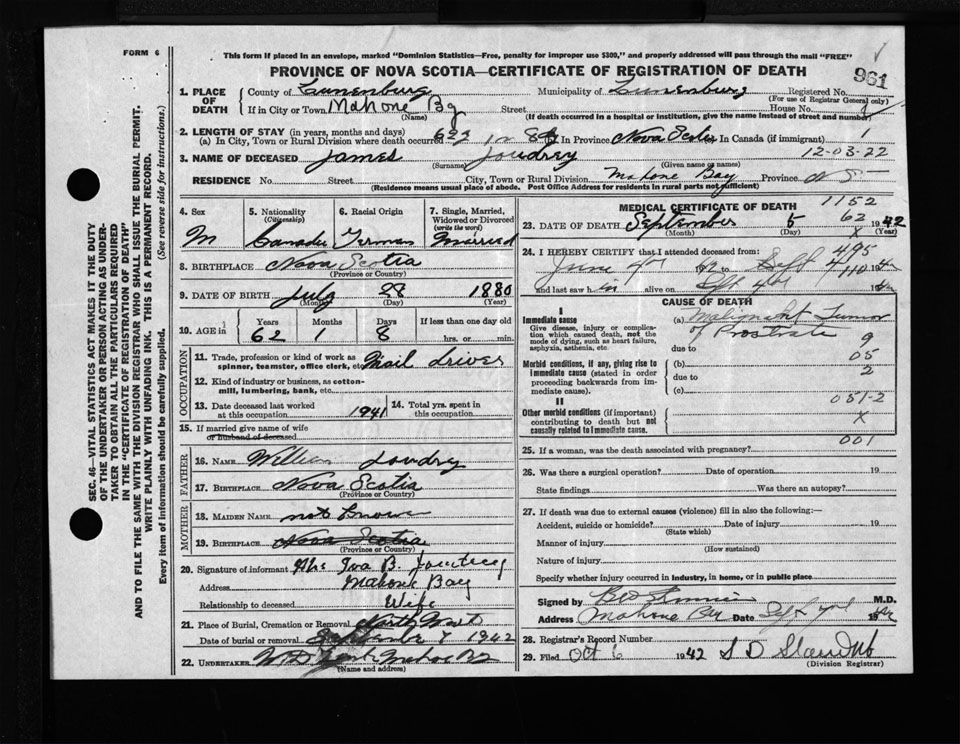 FORM 6
This form if placed in an envelope, marked "Dominion Statistics—Free, penalty for improper use $300," and properly addressed will pass through the mail "FREE"
PROVINCE OF NOVA SCOTIA—CERTIFICATE OF REGISTRATION OF DEATH
961
1. PLACE OF DEATH
County of Lunenburg Municipality of Lunenburg Registered No.
(For use of Registrar General only)
If in City or Town Mahone Bay Street House No.
(Name) (If death occurred in a hospital or institution, give the name instead of street and number)
2. LENGTH OF STAY (in years, months and days)
(a) In City, Town or Rural Division where death occurred 62 In Province Nova Scotia In Canada (if immigrant)
12-03-22
3. NAME OF DECEASED James Joudrey
(Surname) (Given name or names)
RESIDENCE No. Street City, Town or Rural Division Mahone Bay Province N S
(Residence means usual place of abode. Post Office Address for residents in rural parts not sufficient)
4. Sex M
5. Nationality (Citizenship) Canada
6. Racial Origin German
7. Single, Married, Widowed or Divorced (write the word) Married
8. BIRTHPLACE Nova Scotia
(Province or Country)
9. DATE OF BIRTH July 28 1880
(Month) (Day) (Year)
10. AGE in Years Months Days If less than one day old
62 1 8 hrs. or min.
OCCUPATION
11. Trade, profession or kind of work as spinner, teamster, office clerk, etc. Mail Driver
12. Kind of industry or business, as cotton-mill, lumbering, bank, etc.
13. Date deceased last worked at this occupation 1941
14. Total yrs. spent in this occupation
15. If married give name of wife or husband of deceased
FATHER
16. NAME William Joudry
17. BIRTHPLACE Nova Scotia
(Province or Country)
MOTHER
18. MAIDEN NAME not known
19. BIRTHPLACE Nova Scotia
(Province or Country)
20. Signature of informant Mrs Iva B. Joudrey
Address Mahone Bay
Relationship to deceased Wife
21. Place of Burial, Cremation or Removal
Date of burial or removal September 7 1942
22. UNDERTAKER Mahone Bay
(Name and address)
MEDICAL CERTIFICATE OF DEATH
1152
62
23. DATE OF DEATH September 5 1942
(Month) (Day) (Year)
x
24. I HEREBY CERTIFY that I attended deceased from:
495
June 42 to Sept 4 194
and last saw h alive on Sept 4 194
CAUSE OF DEATH
I
Immediate cause
Give disease, injury or complication which caused death, not the mode of dying, such as heart failure, asphyxia, asthenia, etc.
(a) Malignant Tumor of Prostate
due to 9
Morbid conditions, if any, giving rise to immediate cause (stated in order proceeding backwards from immediate cause).
(b) 05
due to 2
(c)
051-2
II
Other morbid conditions (if important) contributing to death but not causally related to immediate cause.
x
001
25. If a woman, was the death associated with pregnancy?
26. Was there a surgical operation? Date of operation 19
State findings Was there an autopsy?
27. If death was due to external causes (violence) fill in also the following:—
Accident, suicide or homicide? Date of injury 19
(State which)
Manner of injury
(How sustained)
Nature of injury
Specify whether injury occurred in industry, in home, or in public place
Signed by M.D.
Address Mahone Bay Sept 194
28. Registrar's Record Number
29. Filed Oct 6 1942 S D
(Division Registrar)
SEC. 46—VITAL STATISTICS ACT MAKES IT THE DUTY
OF THE UNDERTAKER OR PERSON ACTING AS UNDER-
TAKER TO OBTAIN ALL THE PARTICULARS REQUIRED
IN THE "CERTIFICATE OF REGISTRATION OF DEATH"
AND TO FILE THE SAME WITH THE DIVISION REGISTRAR WHO SHALL ISSUE THE BURIAL PERMIT.
WRITE PLAINLY WITH UNFADING INK. THIS IS A PERMANENT RECORD.
Every item of information should be carefully supplied. (See reverse side for instructions.)